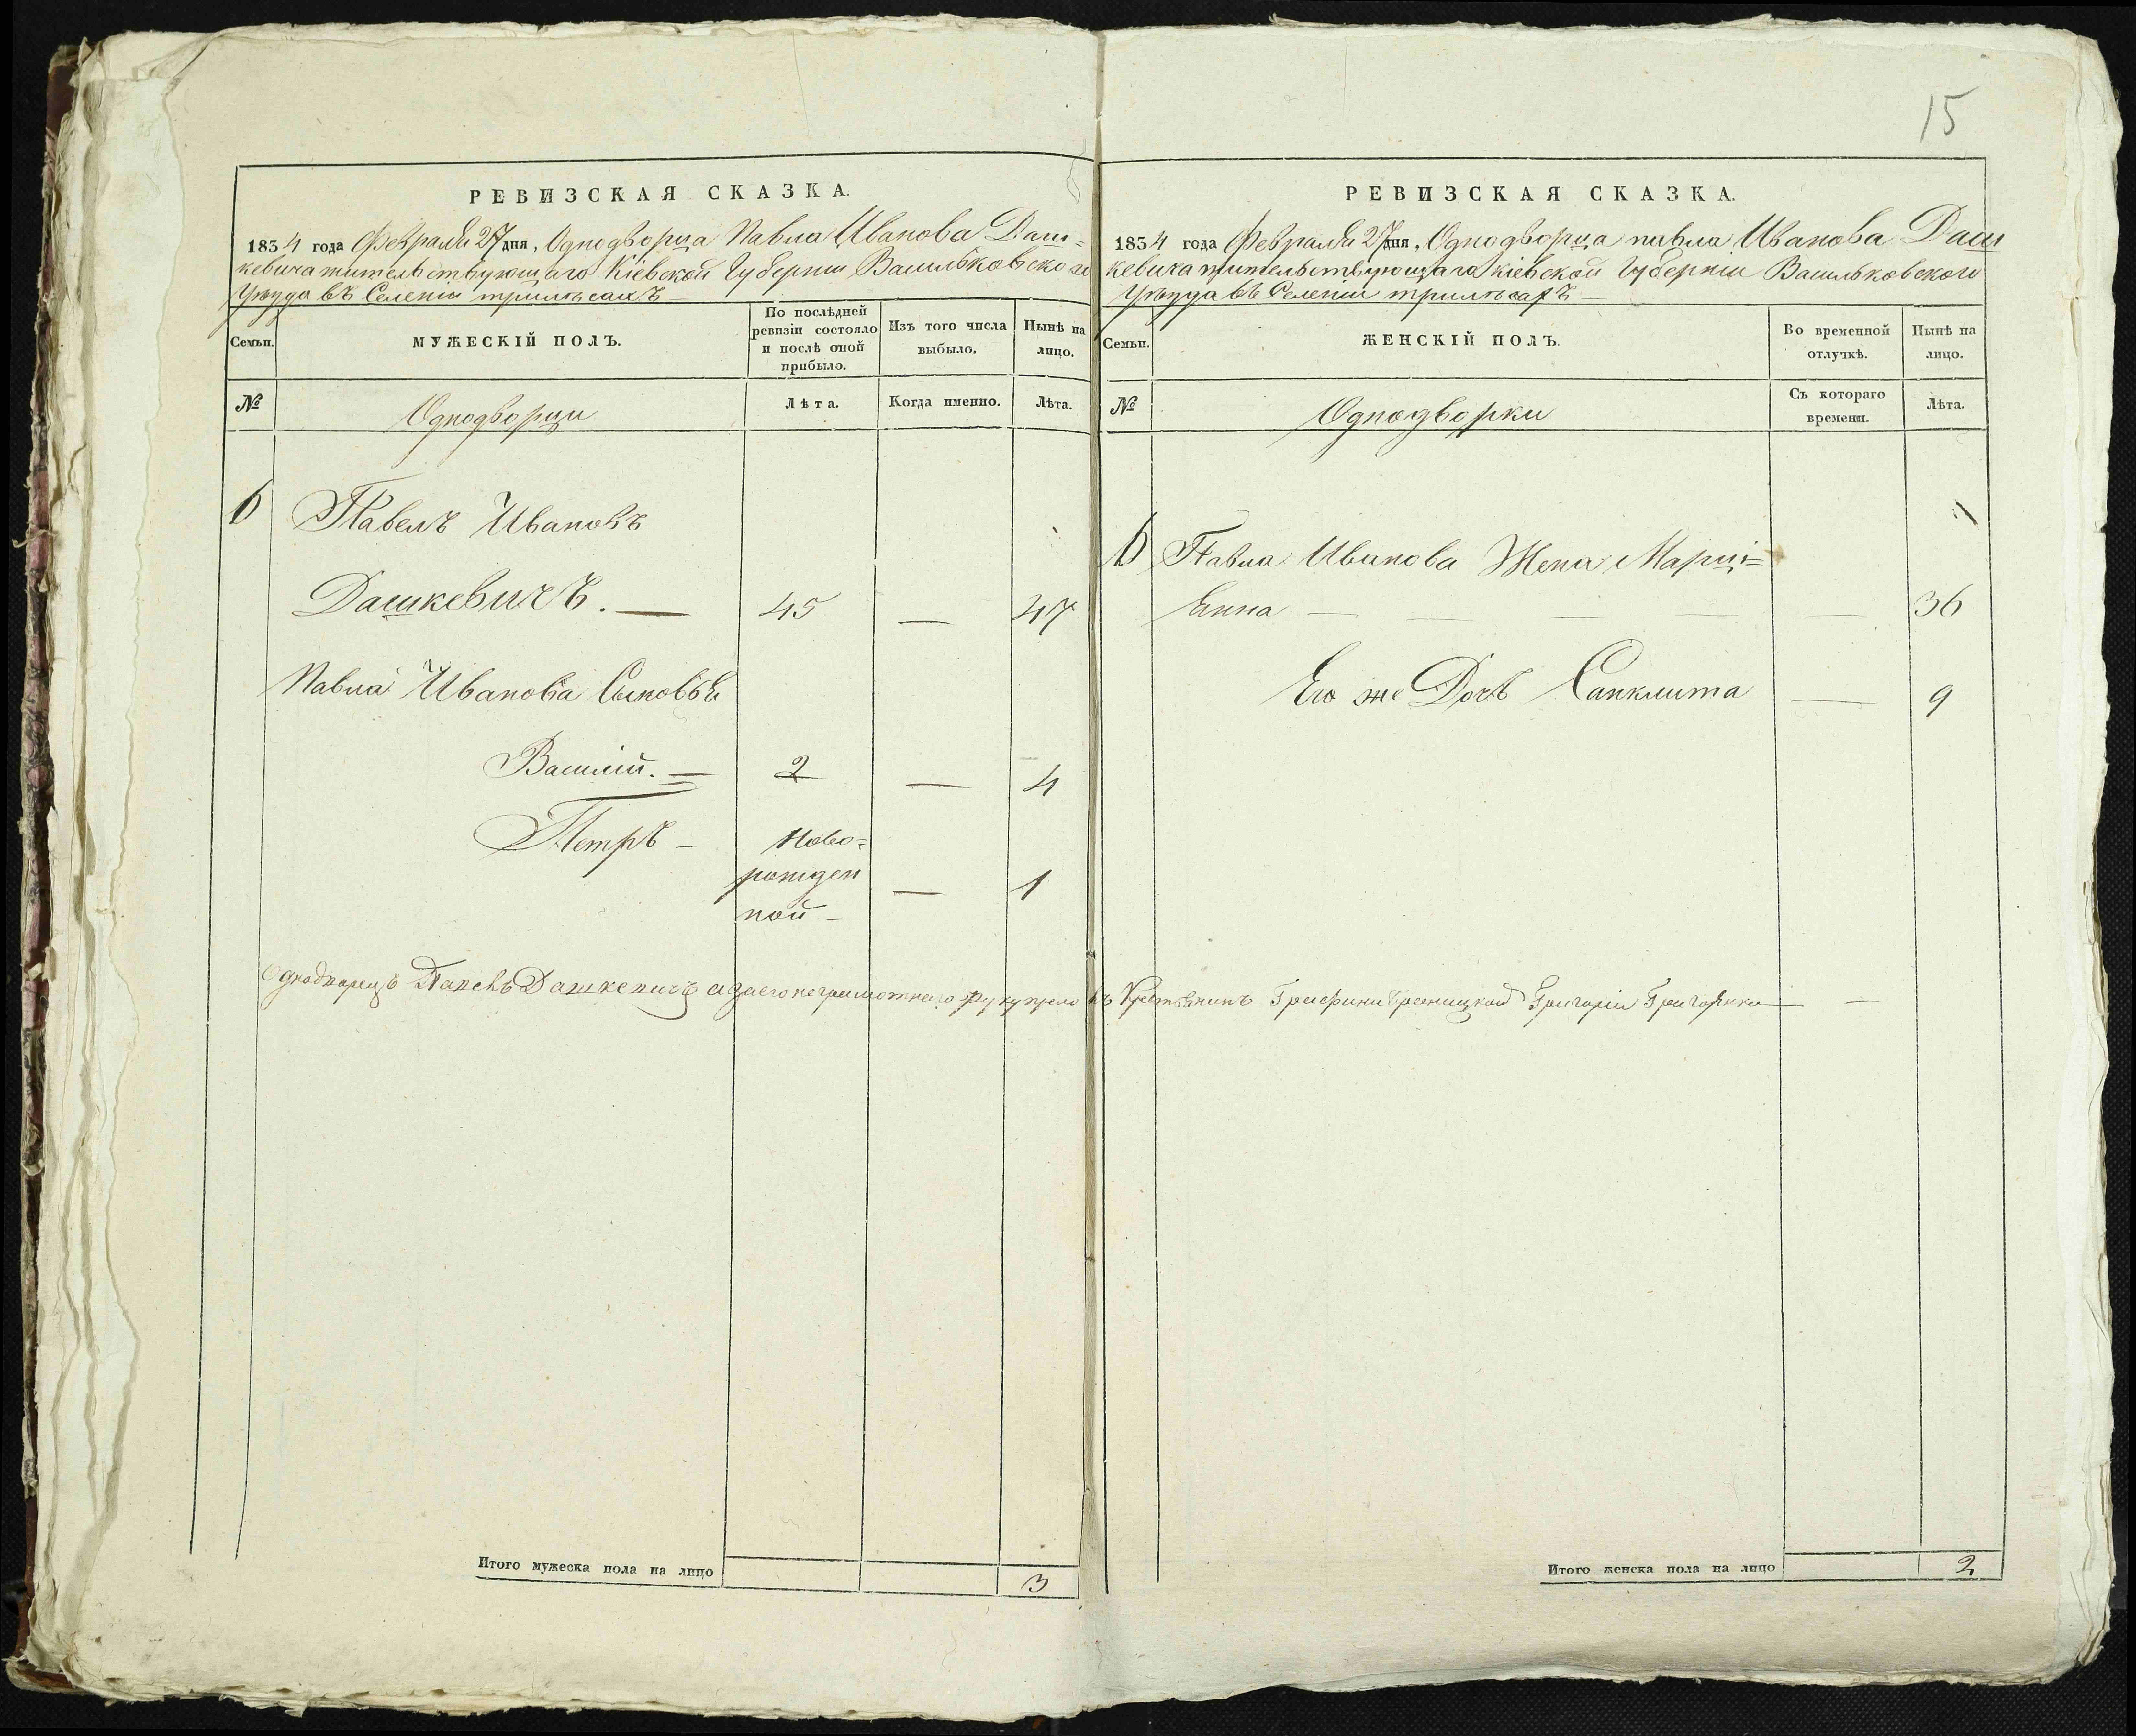 15
РЕВИЗСКАЯ СКАЗКА.
1834 года Февраля 27 дня, Однодворца Павла Иванова Даш=
кевича жительствующаго Кіевской Губерніи Васильковского
Уѣзда въ Селеніи трилѣсахъ
Семьи.
МУЖЕСКІЙ ПОЛЪ.
По послѣдней
ревизіи состояло
и послѣ оной
прибыло.
Изъ того числа
выбыло.
Нынѣ на
лицо.
№
Однодворци
Лѣта.
Когда именно.
Лѣта.
6 Павелъ Ивановъ
Дашкевичъ. — 45 — 47
Павла Иванова Сыновья
Василій. — 2 — 4
Петръ — Ново=
рожден — 1
ной —
Однодворецъ Павелъ Дашкевичъ а за его неграмотнего руку
Итого мужеска пола на лицо 3
РЕВИЗСКАЯ СКАЗКА.
1834 года Февраля 27 дня, Однодворца павла Иванова Даш
кевича жительствующаго кіевской Губерніи Васильковского
Уѣзда въ Селеніи трилѣсахъ —
Семьи.
ЖЕНСКІЙ ПОЛЪ.
Во временной
отлучкѣ.
Нынѣ на
лицо.
№
Однодворки
Съ котораго
времени.
Лѣта.
6 Павла Иванова Жена Марці=
Енна — — — — — 36
Его же Дочь Санклита — 9
Григорій — —
Итого женска пола на лицо 2